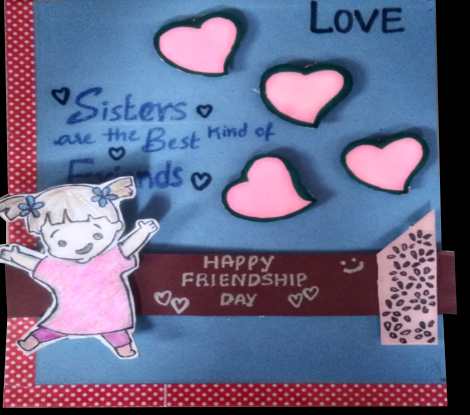 LOVE
Sisters
are the Best Kind of
Friends
HAPPY
FRIENDSHIP
DAY